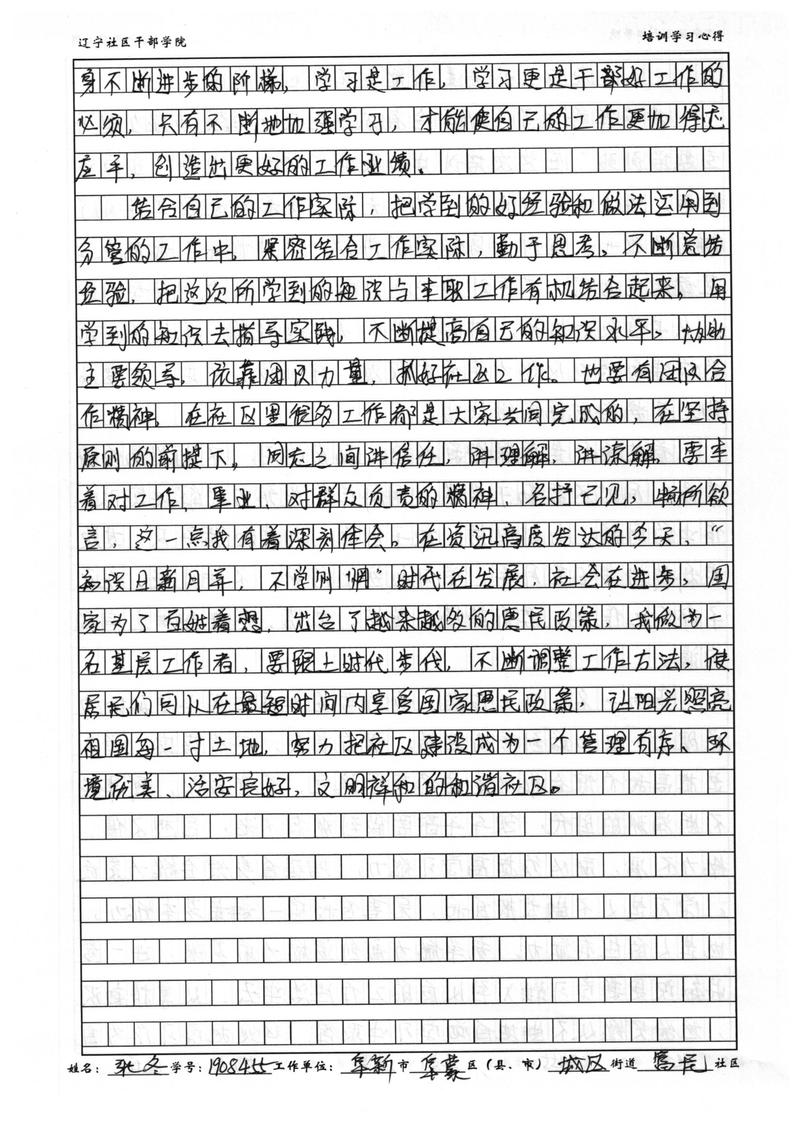 辽宁社区干部学院 培训学习心得
身不断进步的阶梯，学习是工作，学习更是干部好工作的
必须，只有不断地加强学习，才能使自己的工作更加得心
应手，创造出更好的工作业绩。
结合自己的工作实际，把学到的好经验和做法运用到
分管的工作中，紧密结合工作实际，勤于思考，不断总结
经验，把这次所学到的知识与本职工作有机结合起来，用
学到的知识去指导实践，不断提高自己的知识水平，协助
主要领导，依靠团队力量，抓好社区工作。也要有团队合
作精神，在社区里很多工作都是大家共同完成的，在坚持
原则的前提下，同志之间讲信任，讲理解，讲谅解，要本
着对工作、事业、对群众负责的精神，各抒己见，畅所欲
言，这一点我有着深刻体会。在资讯高度发达的今天，“
知识日新月异，不学则惘”时代在发展，社会在进步，国
家为了百姓着想，出台了越来越多的惠民政策，我做为一
名基层工作者，要跟上时代步伐，不断调整工作方法，使
居民们可以在最短时间内享受国家惠民政策，让阳光照亮
祖国每一寸土地，努力把社区建设成为一个管理有序、环
境优美、治安良好，文明祥和的和谐社区。
姓名：冬 学号：1908455 工作单位：阜新市 阜蒙 区（县、市） 城区 街道 社区